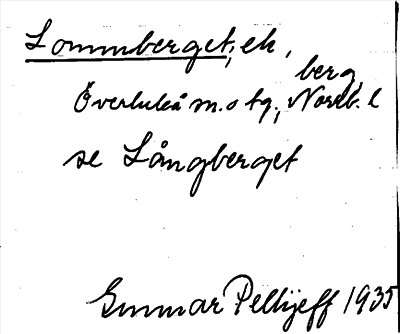 Lommberget, ek,
berg,
Överluleå m. o tg., Norrb. l
se Långberget
Gunnar Pellijeff 1935